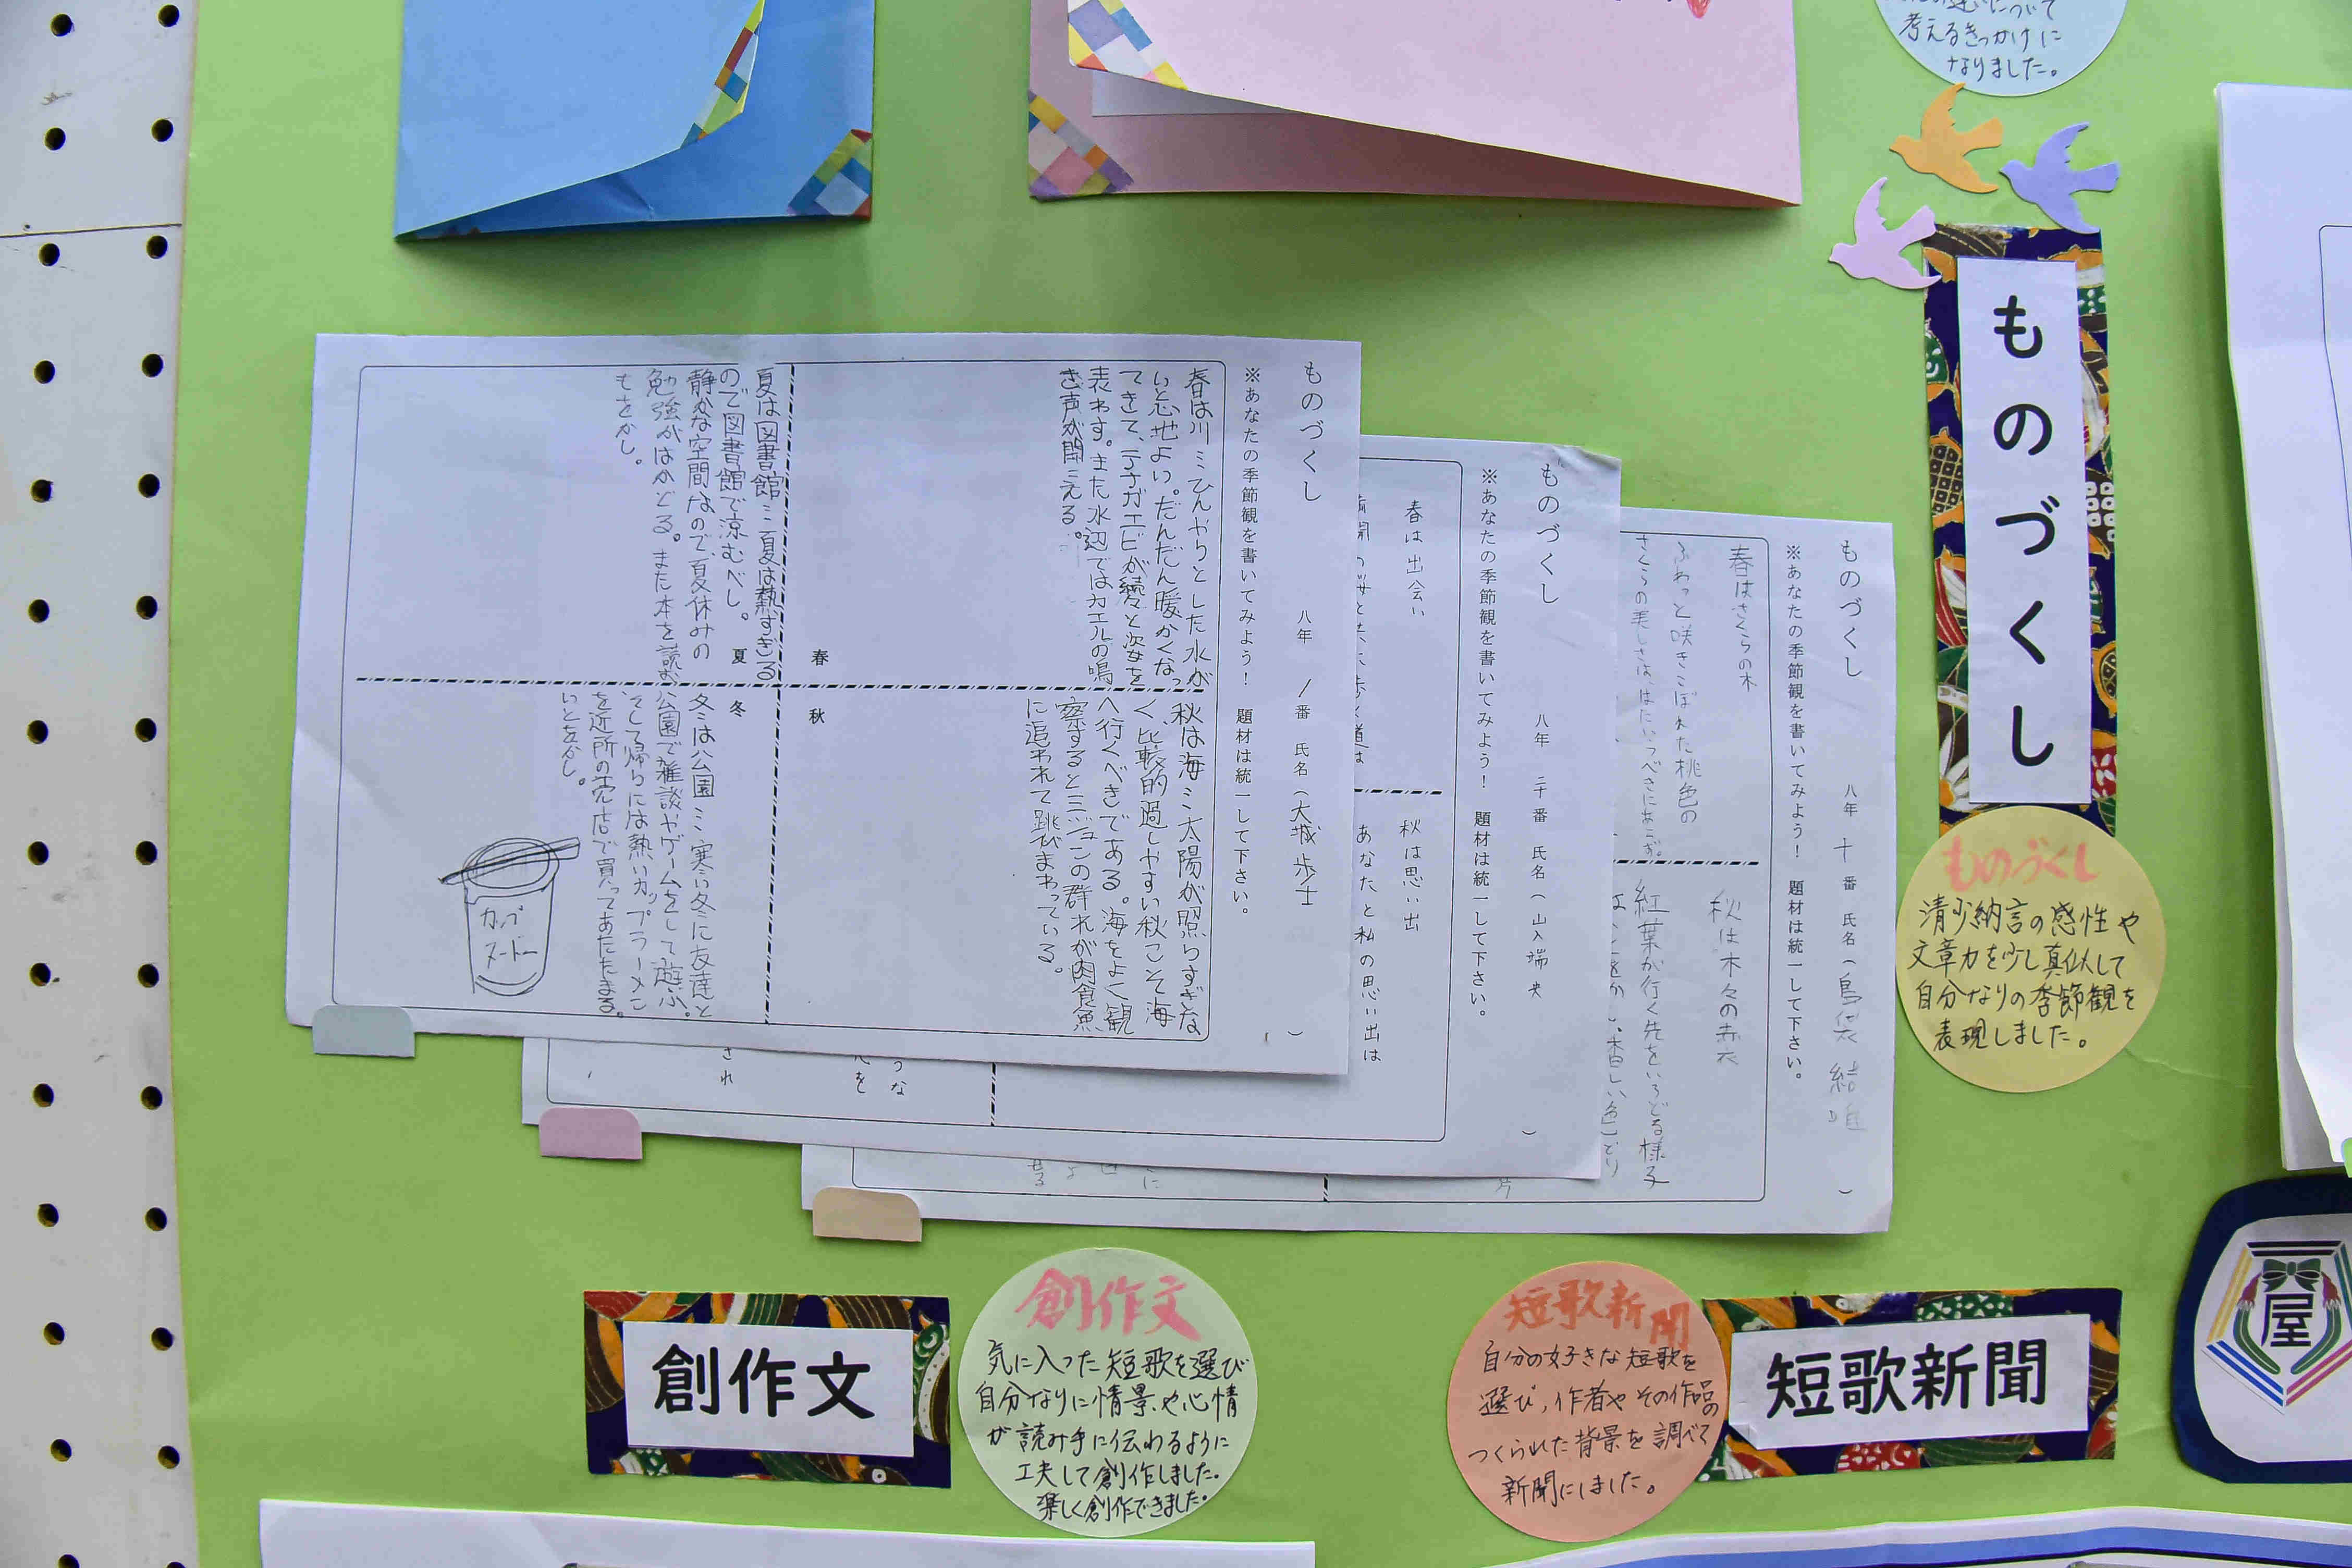 考えるきっかけに
なりました。
ものづくし
ものづくし
清少納言の感性や
文章力を少し真似して
自分なりの季節観を
表現しました。
ものづくし
八年 十番 氏名(島袋 結唯)
※あなたの季節観を書いてみよう! 題材は統一して下さい。
春はさくらの木
ふわっと咲きこぼれた桃色の
さくらの美しさは、はたいうべきにあらず。
秋は木々の赤衣
紅葉が行く先をいろどる様子
ものづくし
八年 二十番 氏名(山入端 央)
※あなたの季節観を書いてみよう! 題材は統一して下さい。
春は出会い
秋は思い出
あなたと私の思い出は
ものづくし
八年 1番 氏名(大城 歩士)
※あなたの季節観を書いてみよう! 題材は統一して下さい。
春は川…ひんやりとした水が
いと心地よい。だんだん暖かくなっ
てきて、テナガエビが続々と姿を
表わす。また水辺ではカエルの鳴
き声が聞こえる。
春
秋は海…太陽が照らすぎな
く、比較的過しやすい秋こそ海
へ行くべきである。海をよく観
察するとミジュンの群れが肉食魚
に追われて跳びまわっている。
秋
夏は図書館…夏は熱すぎる
ので図書館で涼むべし。
静かな空間なので、夏休みの
勉強がはかどる。また本を読む
もをかし。
夏
冬
冬は公園…寒い冬に友達と
公園で雑談やゲームをして遊ぶ。
そして帰りには熱いカップラーメン
を近所の売店で買ってあたたまる。
いとをかし。
カップ
ヌードー
創作文
創作文
気に入った短歌を選び
自分なりに情景や心情
が読み手に伝わるように
工夫して創作しました。
楽しく創作できました。
短歌新聞
自分の好きな短歌を
選び、作者やその作品の
つくられた背景を調べて
新聞にしました。
短歌新聞
屋